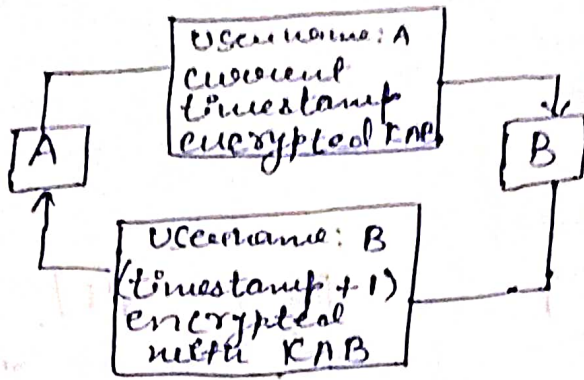 Username: A
current
timestamp
encrypted KAB
A
B
Username: B
(timestamp + 1)
encrypted
with KAB